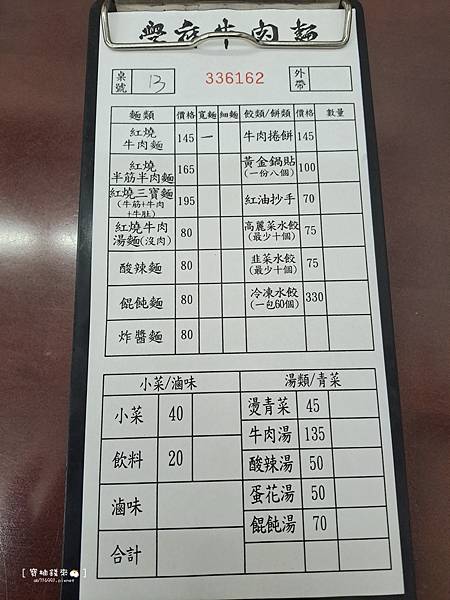 豐庭牛肉麵
桌號 13 336162 外帶
麵類 價格 寬麵 細麵 餃類/餅類 價格 數量
紅燒牛肉麵 145 一 牛肉捲餅 145
紅燒半筋半肉麵 165 黃金鍋貼(一份八個) 100
紅燒三寶麵(牛筋+牛肉+牛肚) 195 紅油抄手 70
紅燒牛肉湯麵(沒肉) 80 高麗菜水餃(最少十個) 75
酸辣麵 80 韭菜水餃(最少十個) 75
餛飩麵 80 冷凍水餃(一包60個) 330
炸醬麵 80
小菜/滷味 湯類/青菜
小菜 40 燙青菜 45
飲料 20 牛肉湯 135
滷味 酸辣湯 50
蛋花湯 50
合計 餛飩湯 70
[ 寶妯錢來 ]